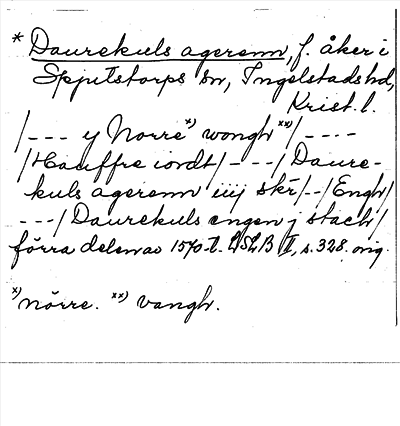 * Daurekuls agerenn, f. åker i
Spjutstorps sn, Ingelstads hd,
Krist. l.
/--- y Norre x) wongh xx)/----
/Hauffre iordt/----/Daure-
kuls agerenn iiij skr̄/--/Engh/
---/Daurekuls engen j stack/
förra delen av 1570-t. LSLB II, s. 328 orig.
x) nörre. xx) vangh.